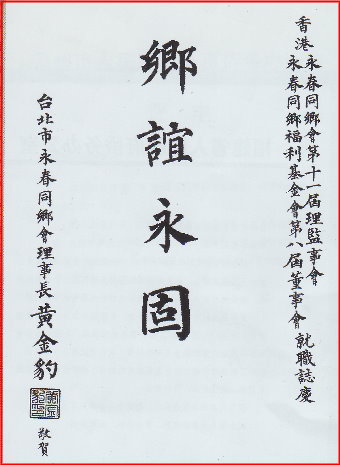 香港永春同鄉會第十一屆理監事會
永春同鄉福利基金會第八屆董事會
就職誌慶
鄉誼永固
台北市永春同鄉會理事長黃金豹
敬賀